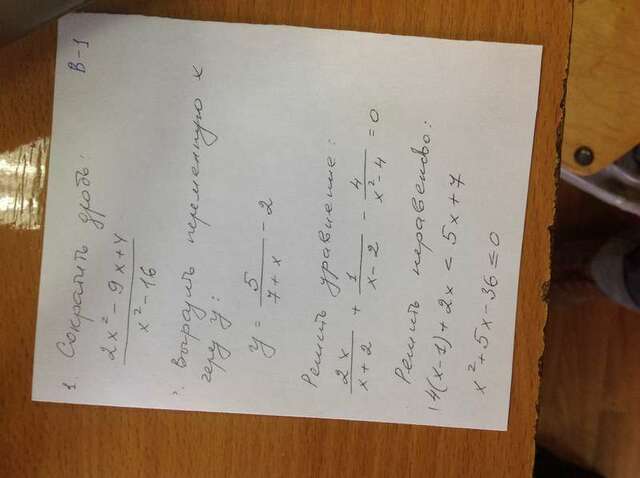 В-1
1. Сократить дробь:
2x² - 9x + 4
x² - 16
Выразить переменную x
через y:
y = 5 / 7 + x - 2
Решить уравнение:
2x / x + 2 + 1 / x - 2 - 4 / x² - 4 = 0
Решить неравенство:
4(x-1) + 2x < 5x + 7
x² + 5x - 36 ≤ 0